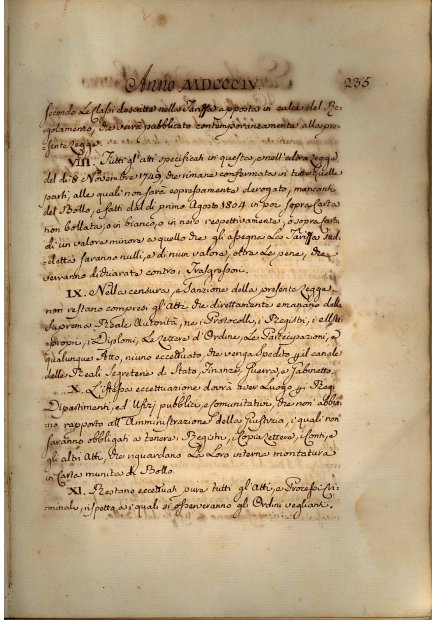 Anno MDCCCIV. 235
secondo le Classi descritte nella Tariffa apposta in calce del Re-
golamento, che verrà pubblicato contemporaneamente alla pre-
sente Legge.
VIII. Tutti gl'atti specificati in questa, e nell'altra Legge
del dì 8 Novembre 1749, che rimane confermata in tutte quelle
parti, alle quali non sarà espressamente derogato, mancanti
del Bollo, e fatti dal dì primo Agosto 1804 in poi sopra Carta
non bollata, o in bianco, o in nero respettivamente, o sopra Carta
di un valore minore a quello che gli assegna La Tariffa sud-
detta saranno nulli, e di niun valore, oltre le pene, che
verranno dichiarate contro i Trasgressori.
IX. Nella censura, e Sanzione della presente Legge
non restano compresi gl'Atti, che direttamente emanano dalla
Suprema Reale Autorità, nè i Protocolli, i Registri, i
propri, i Diplomi, Le Lettere d'Ordine, Le Partecipazioni, e
qualunque Atto, niuno eccettuato, che venga spedito p. il canale
delle Reali Segreterie di Stato, Finanze, Guerra, e Gabinetto.
X. L'istessa eccettuazione dovrà aver Luogo p. i Regi
Dipartimenti, ed Ufizj pubblici, e comunitativi, che non abbia-
no rapporto all'Amministrazione della Giustizia, i quali non
saranno obbligati a tenere i Registri, i Copia Lettere, i Conti, e
gli altri Atti, che riguardano La Loro interna montatura
in Carta munita di Bollo.
XI. Restano eccettuati pure tutti gl'Atti, e Processi Cri-
minali, rispetto a i quali si osserveranno gli Ordini veglianti.